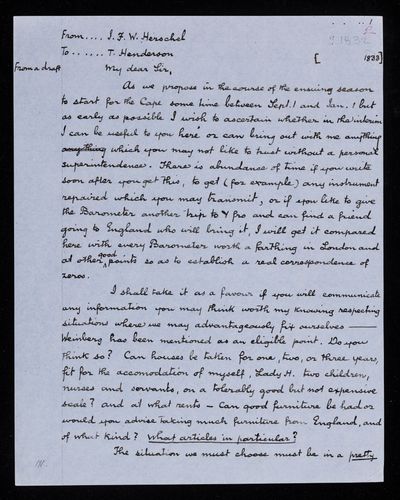 From.... J. F. W. Herschel
To ...... T. Henderson
[ 1833]
From a draft
My dear Sir,
As we propose in the course of the ensuing season
to start for the Cape some time between Sept. 1 and Jan. 1 but
as early as possible I wish to ascertain whether in the interim
I can be useful to you here or can bring out with me anything
anything which you may not like to trust without a person's
superintendence. There is abundance of time if you write
soon after you get this, to get (for example) any instrument
repaired which you may transmit, or if you like to give
the Barometer another trip to & fro and can find a friend
going to England who will bring it, I will get it compared
here with every Barometer worth a farthing in London and
at other good points so as to establish a real correspondence of
zeros.
I shall take it as a favour if you will communicate
any information you may think worth my knowing respecting
situations where we may advantageously fix ourselves ——
Weinberg has been mentioned as an eligible point. Do you
think so? Can houses be taken for one, two, or three years,
fit for the accomodation of myself, Lady H. two children,
nurses and servants, on a tolerably good but not expensive
scale? and at what rents – Can good furniture be had or
would you advise taking much furniture from England, and
of what kind? What articles in particular?
The situation we must choose must be in a pretty